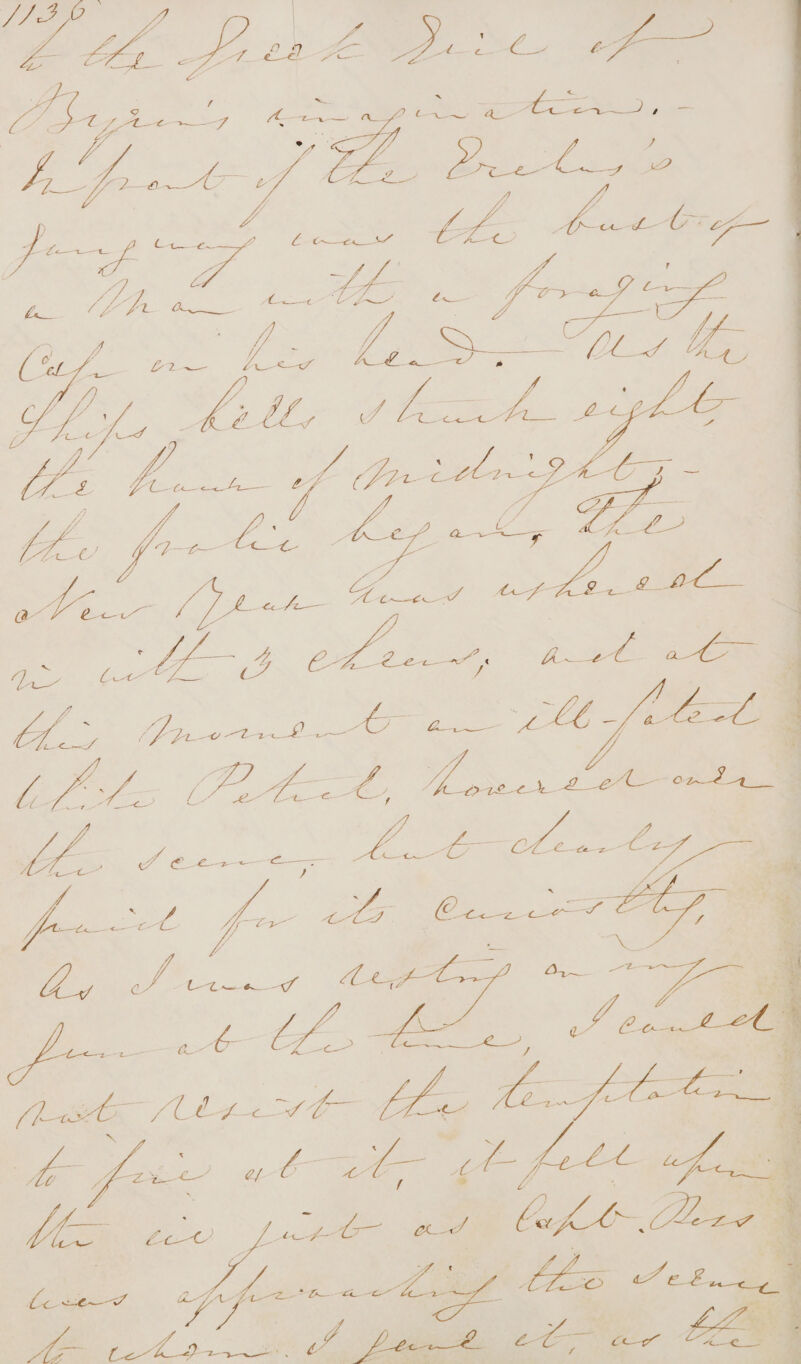 1136
to the Greek Girl of
Byron's imagination. -
In front of the Erebus's
gangway was the bust of
a Man with a foraging
Cap on his head. - As the
Ships bells struck eight,
the hour of Midnight; -
the frolic began, The
New Year was ushered
in with 3 cheers; and at
this moment an ill-fated
White Petrel, hovered over
the scene, but dearly
paid for its curiosity,
As I was resting on my
Gun at the time, I could
not resist the temptation
to fire at it, it fell upon
the ice just as Capt. Ross
was approaching the scene
to whom I gave it, as the